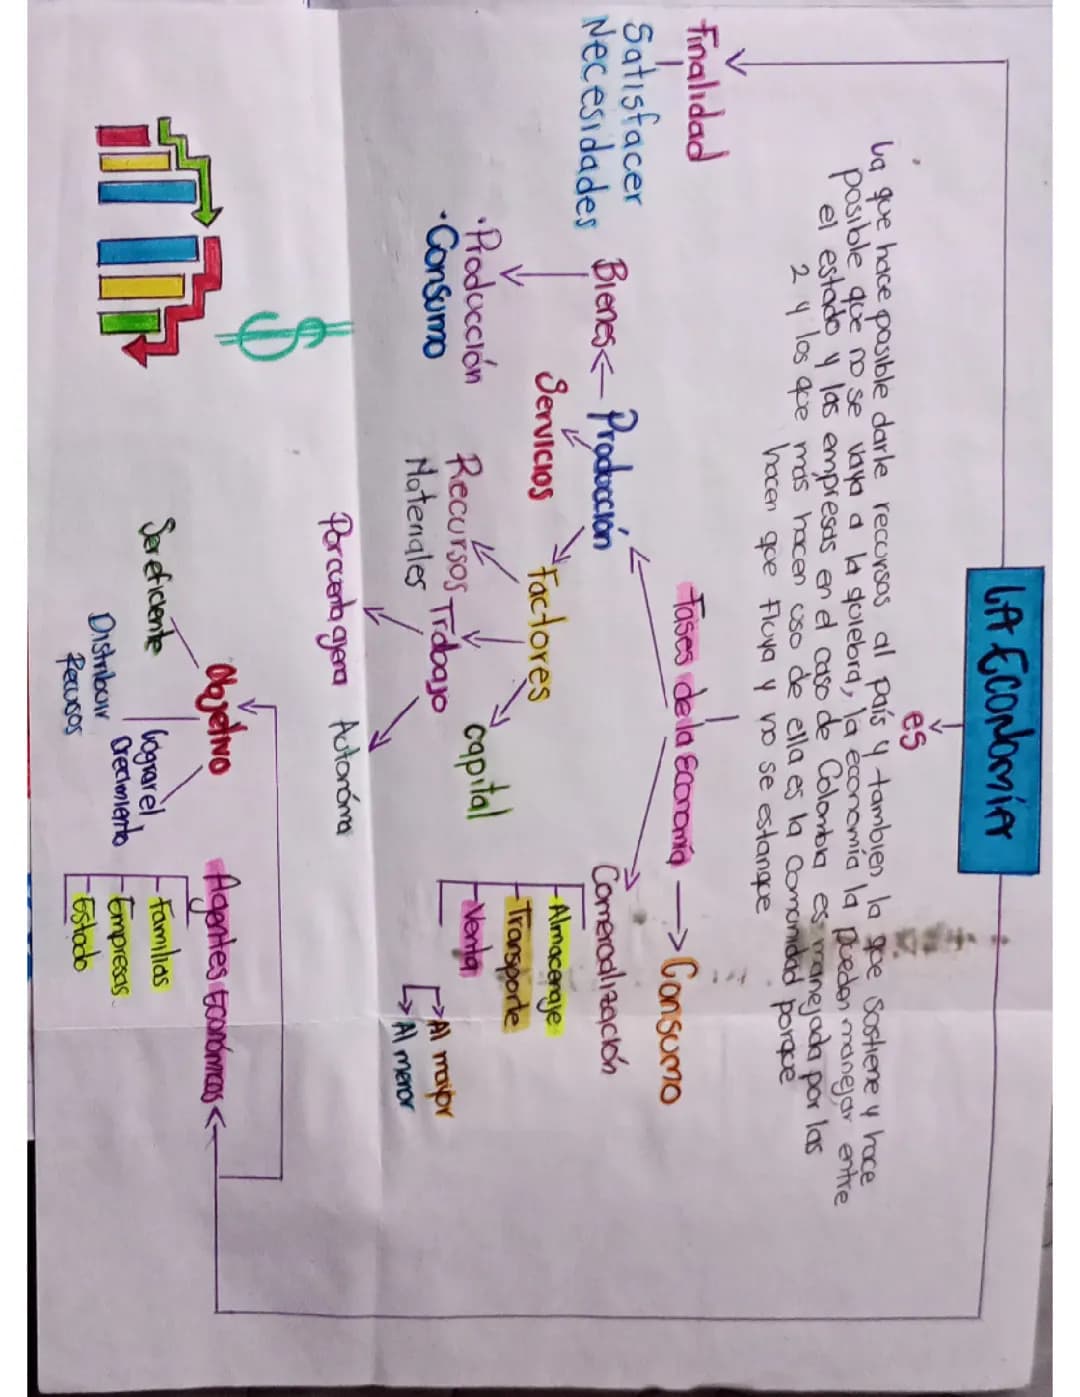 LA ECONOMÍA
es
La que hace posible darle recursos al país y tambien la que sostiene y hace
posible que no se vaya a la quiebra, la economía la pueden manejar entre
el estado y las empresas en el caso de Colombia es manejada por las
2 y los que más hacen uso de ella es la comunidad porque
hacen que fluya y no se estanque
Finalidad
Satisfacer
Necesidades
Fases de la Economía
Consumo
Bienes
Producción
Comercialización
Servicios
Factores
- Almacenaje
- Transporte
- Venta
Al mayor
Al menor
•Producción
•Consumo
Recursos
Materiales
Trabajo
capital
Por cuenta ajena
Autonóma
$
Objetivo
Ser eficiente
Distribuir
Recusos
lograr el
Crecimiento
Agentes Económicos
- Familias
- Empresas
- Estado